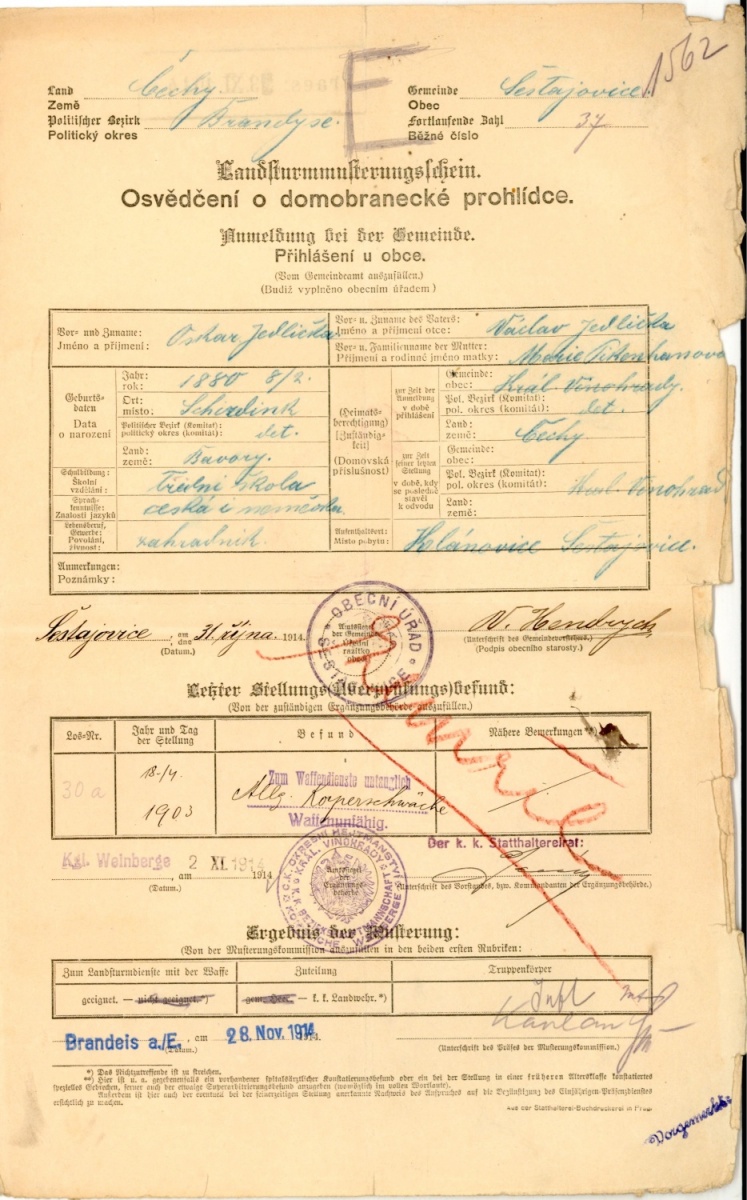 1562
E
Land Země Čechy.
Gemeinde Obec Šestajovice.
Politischer Bezirk Politický okres Brandýse.
Fortlaufende Zahl Běžné číslo 37
Landsturmmusterungsschein.
Osvědčení o domobranecké prohlídce.
Anmeldung bei der Gemeinde.
Přihlášení u obce.
(Vom Gemeindeamt auszufüllen.)
(Budiž vyplněno obecním úřadem)
Vor- und Zuname: Jméno a příjmení: Oskar Jedlička
Vor- u. Zuname des Vaters: Jméno a příjmení otce: Václav Jedlička
Vor- u. Familienname der Mutter: Příjmení a rodinné jméno matky: Marie
Geburtsdaten
Data o narození
Jahr: rok: 1880 8/2.
Ort: místo: Schirdink
Politischer Bezirk (Komitat): politický okres (komitát): det.
Land: země: Bavory.
(Heimatsberechtigung)
[Zuständigkeit]
(Domovská příslušnost)
zur Zeit der Anmeldung
v době přihlášení
Gemeinde: obec: Král. Vinohrady.
Pol. Bezirk (Komitat): pol. okres (komitát): det.
Land: země: Čechy
zur Zeit seiner letzten Stellung
v době, kdy se posledně stavěl k odvodu
Gemeinde: obec:
Pol. Bezirk (Komitat): pol. okres (komitát): Král. Vinohrad
Land: země:
Schulbildung: Školní vzdělání: třídní škola
Sprachkenntnisse: Znalosti jazyků česká i německá
Lebensberuf, Gewerbe: Povolání, živnost: zahradník.
Aufenthaltsort: Místo pobytu: Klánovice Šestajovice.
Anmerkungen:
Poznámky:
Šestajovice, am dne 31. října 1914.
(Datum.)
OBECNÍ ÚŘAD ŠESTAJOVICE
Amtssiegel der Gemeinde
Úřední razítko obce
V. Hendrych
(Unterschrift des Gemeindevorstehers.)
(Podpis obecního starosty.)
Letzter Stellungs(Überprüfungs)befund:
(Von der zuständigen Ergänzungsbehörde auszufüllen.)
Los-Nr.
Jahr und Tag der Stellung
Befund
Nähere Bemerkungen **)
30 a
18/4
1903
Zum Waffendienste untauglich
Allg. Koperschwäche
Waffenunfähig.
Kgl. Weinberge, am 2 XI. 1914 1914
(Datum.)
C.K. OKRESNÍ HEJTMANSTVÍ KRÁL. VINOHRADY
K.K. BEZIRKSHAUPTMANNSCHAFT KÖNIGLICHE WEINBERGE
Amtssiegel der Ergänzungsbehörde
Der k. k. Statthaltereirat:
(Unterschrift des Vorstandes, bzw. Kommandanten der Ergänzungsbehörde.)
Ergebnis der Musterung:
(Von der Musterungskommission auszufüllen in den beiden ersten Rubriken:
Zum Landsturmdienste mit der Waffe
Zuteilung
Truppenkörper
geeignet. — nicht geeignet.*)
gem. Heer. — k. k. Landwehr.*)
Brandeis a./E., am 28. Nov. 1914 1914.
(Datum.)
(Unterschrift des Präses der Musterungskommission.)
*) Das Nichtzutreffende ist zu streichen.
**) Hier ist u. a. gegebenenfalls ein vorhandener spitalsärztlicher Konstatierungsbefund oder ein bei der Stellung in einer früheren Altersklasse konstatiertes
spezielles Gebrechen, ferner auch der etwaige Superarbitrierungsbefund anzugeben (womöglich im vollen Wortlaute).
Außerdem ist hier auch der eventuell bei der seinerzeitigen Stellung anerkannte Nachweis des Anspruches auf die Begünstigung des Einjährigen-Präsenzdienstes
ersichtlich zu machen.
Aus der Statthalterei-Buchdruckerei in Prag
Vorgemerkt: